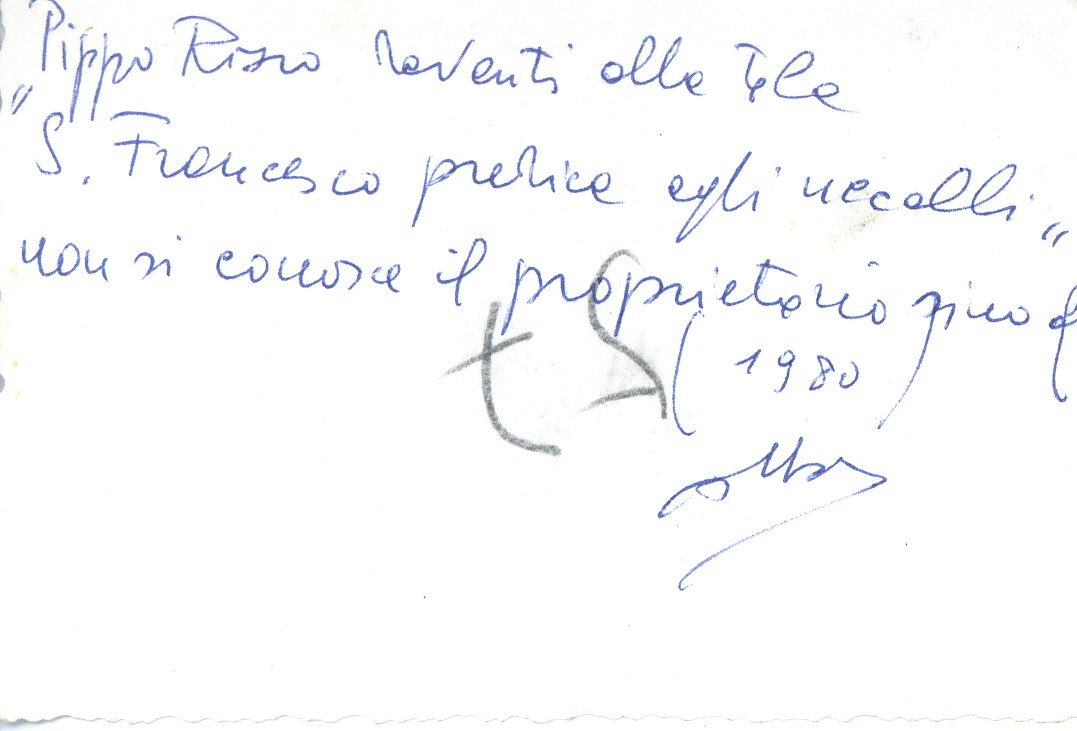 "Pippo Rizzo davanti alla tela
S. Francesco predica agli uccelli"
non si conosce il proprietario sino al
(1980)